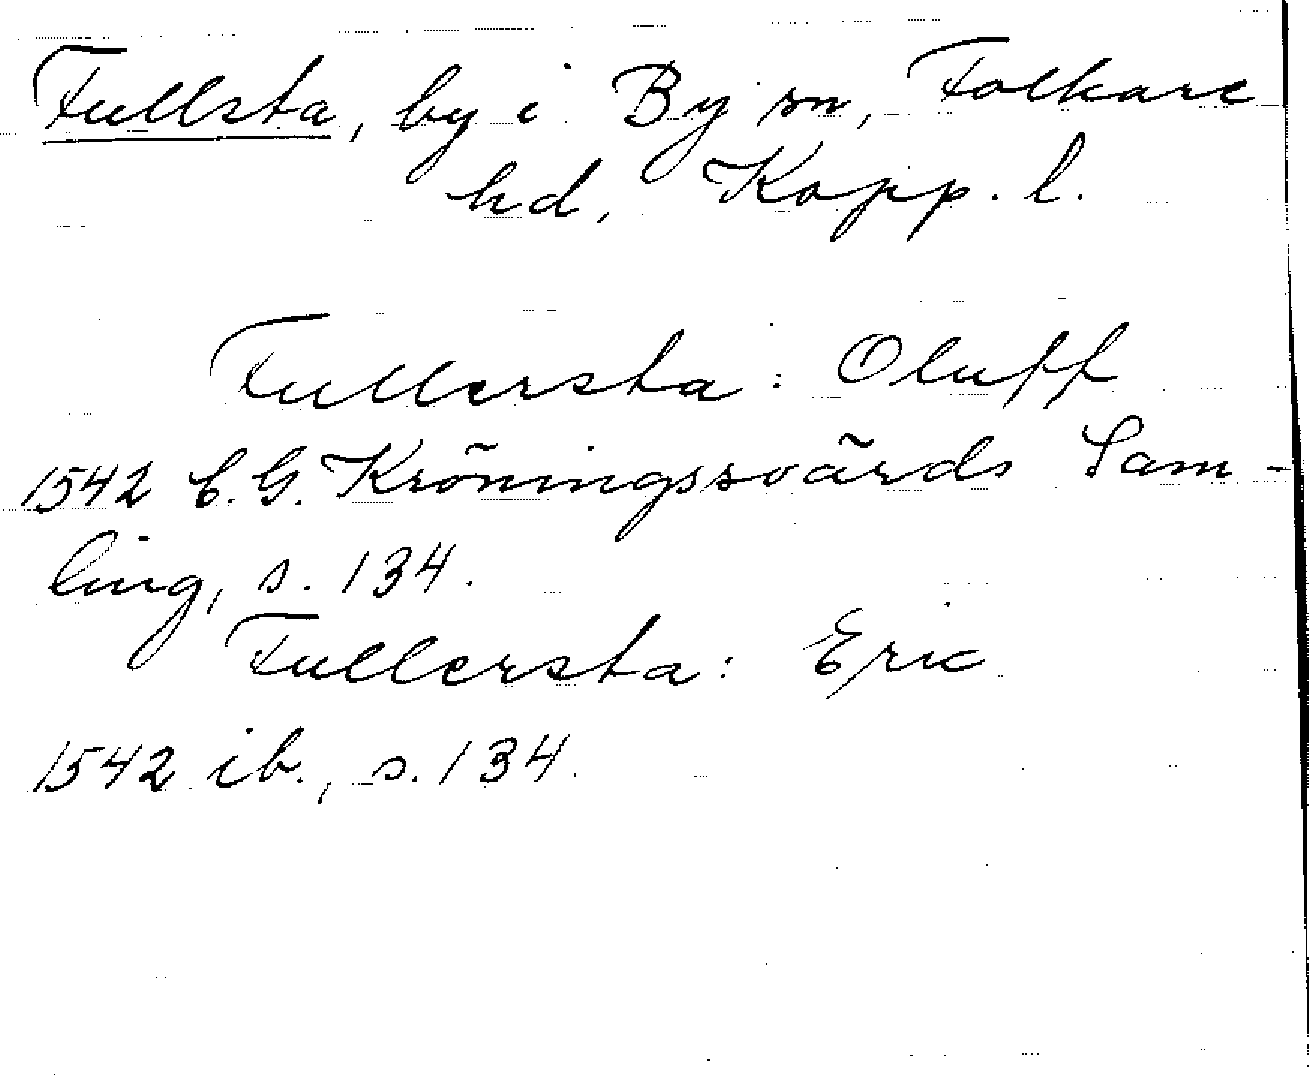 Fullsta, by i By sn, Folkare
hd, Kopp. l.
Fullersta: Oluff
1542 C.G. Kröningssvärds Sam-
ling, s. 134.
Fullersta: Eric
1542 ib., s. 134.